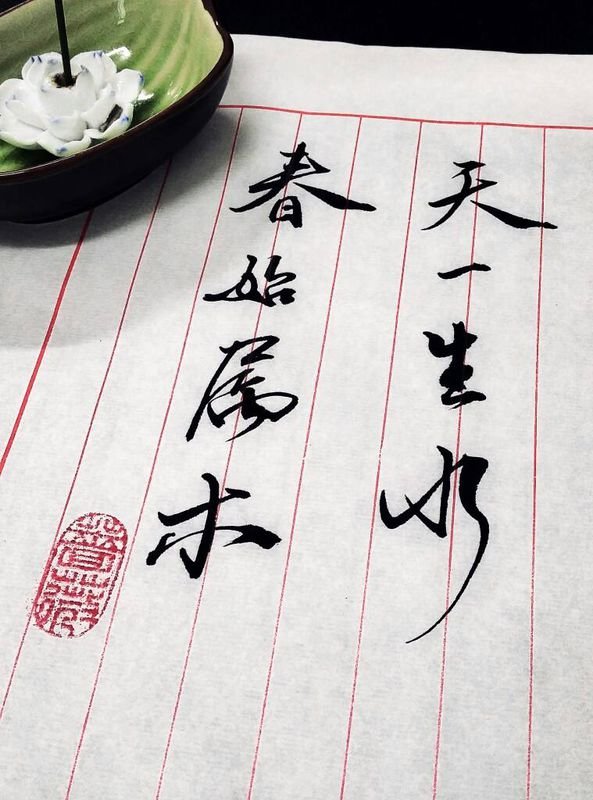 天一生水
春始属木